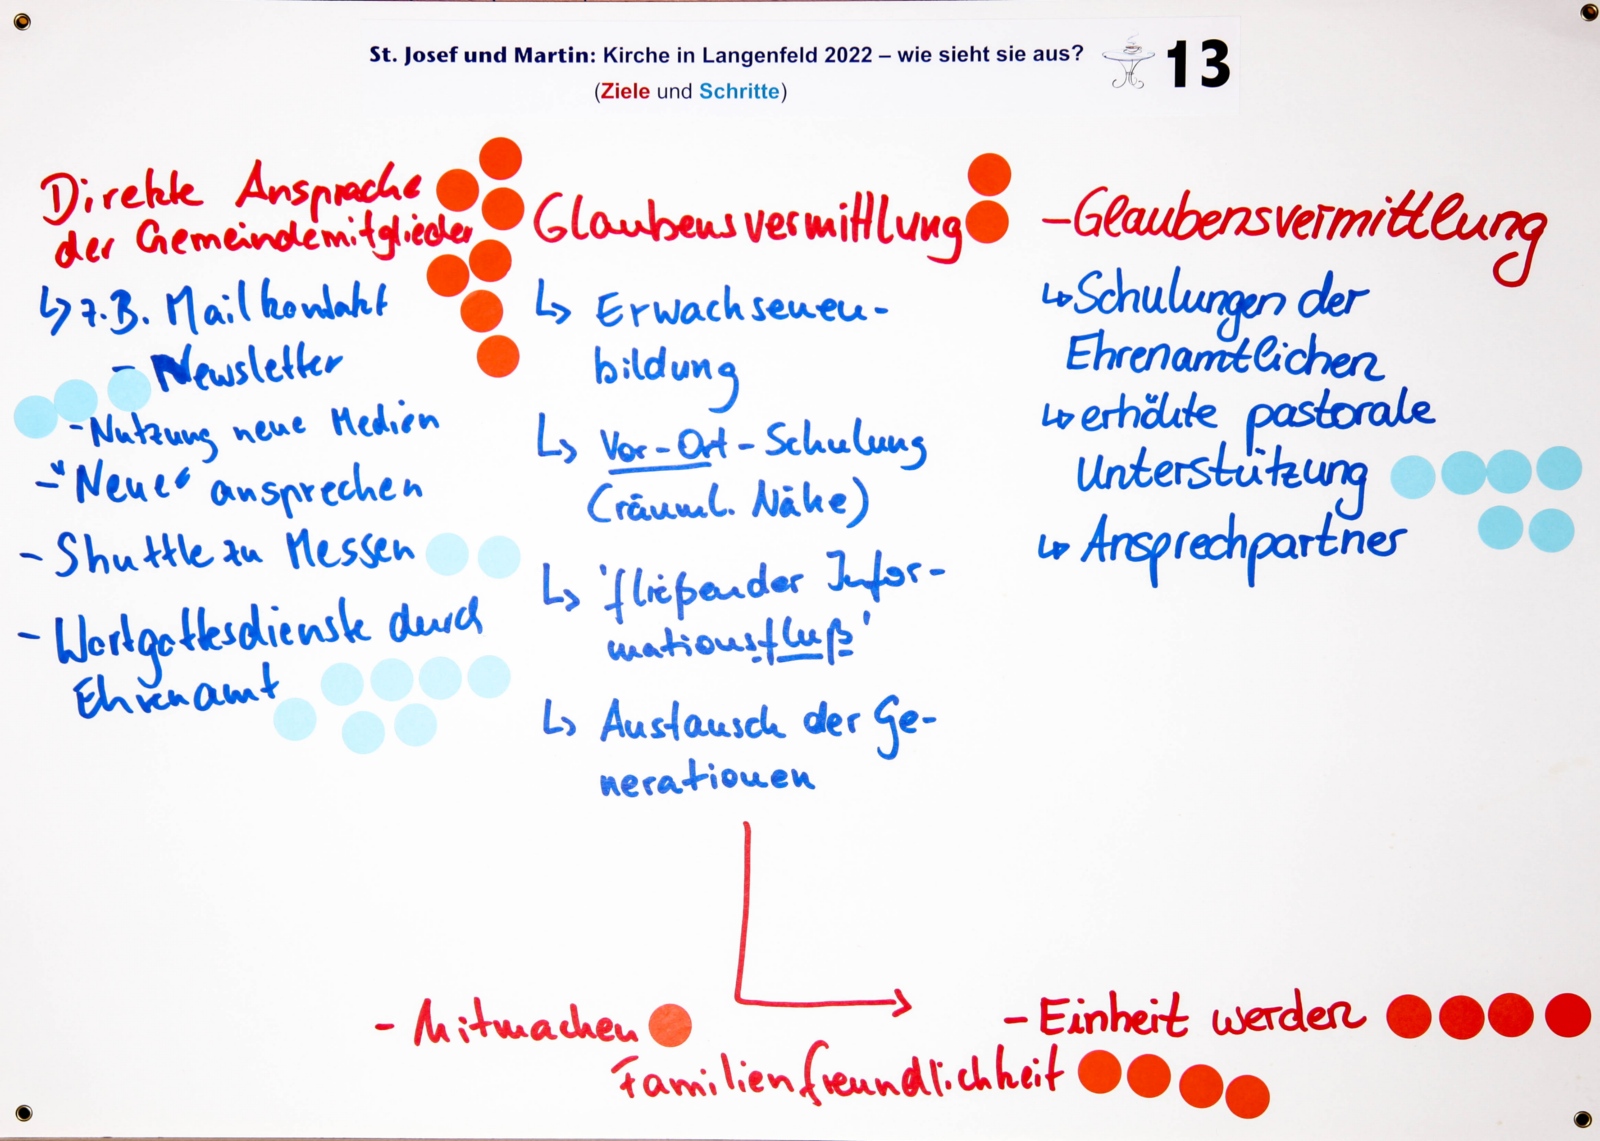 St. Josef und Martin: Kirche in Langenfeld 2022 – wie sieht sie aus?
(Ziele und Schritte)
13
Direkte Ansprache
der Gemeindemitglieder
↳ z.B. Mailkontakt
- Newsletter
- Nutzung neue Medien
- "Neue" ansprechen
- Shuttle zu Messen
- Wortgottesdienste durch
Ehrenamt
Glaubensvermittlung
↳ Erwachsenen-
bildung
↳ Vor-Ort-Schulung
(räuml. Nähe)
↳ 'fließender Infor-
mationsfluß'
↳ Austausch der Ge-
nerationen
- Glaubensvermittlung
↳ Schulungen der
Ehrenamtlichen
↳ erhöhte pastorale
Unterstützung
↳ Ansprechpartner
- Mitmachen
- Einheit werden
Familienfreundlichkeit